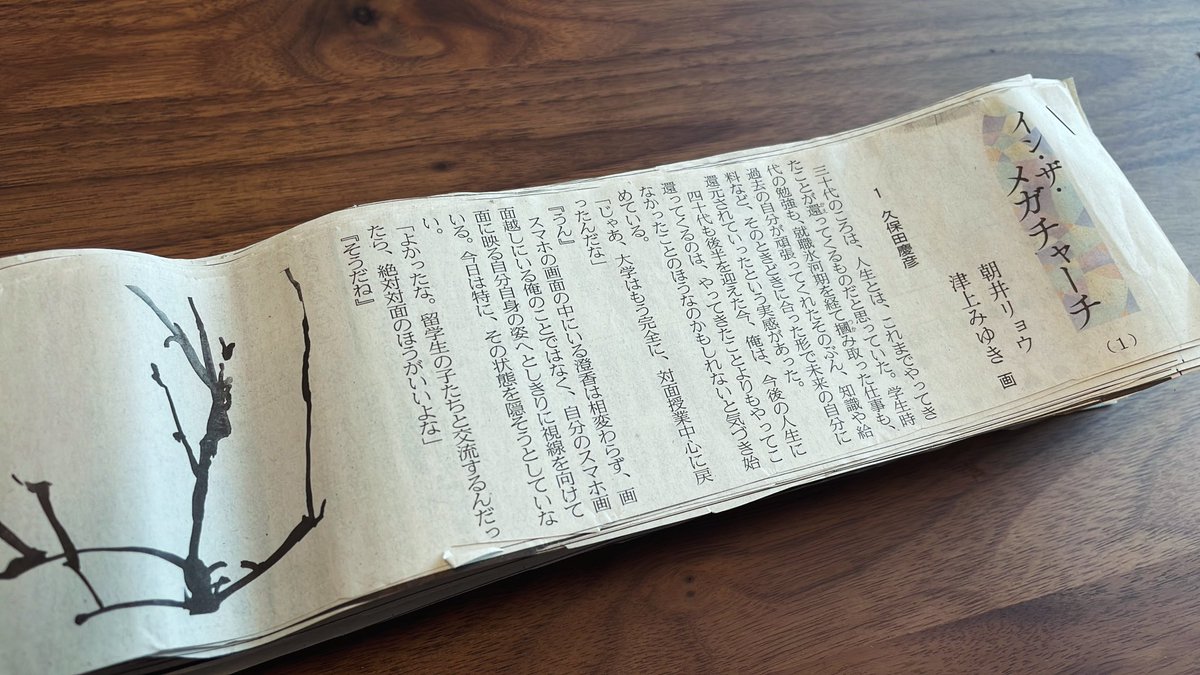 イン・ザ・メガチャーチ
（1）
朝井リョウ
津上みゆき 画
1 久保田慶彦
三十代のころは、人生とは、これまでやってき
たことが還ってくるものだと思っていた。学生時
代の勉強も、就職氷河期を経て摑み取った仕事も、
過去の自分が頑張ってくれたそのぶん、知識や給
料など、そのときどきに合った形で未来の自分に
還元されていったという実感があった。
四十代も後半を迎えた今、俺は、今後の人生に
還ってくるのは、やってきたことよりもやってこ
なかったことのほうなのかもしれないと気づき始
めている。
「じゃあ、大学はもう完全に、対面授業中心に戻
ったんだな」
『うん』
スマホの画面の中にいる澄香は相変わらず、画
面越しにいる俺のことではなく、自分のスマホ画
面に映る自分自身の姿へとしきりに視線を向けて
いる。今日は特に、その状態を隠そうとしていな
い。
「よかったな。留学生の子たちと交流するんだっ
たら、絶対対面のほうがいいよな」
『そうだね』